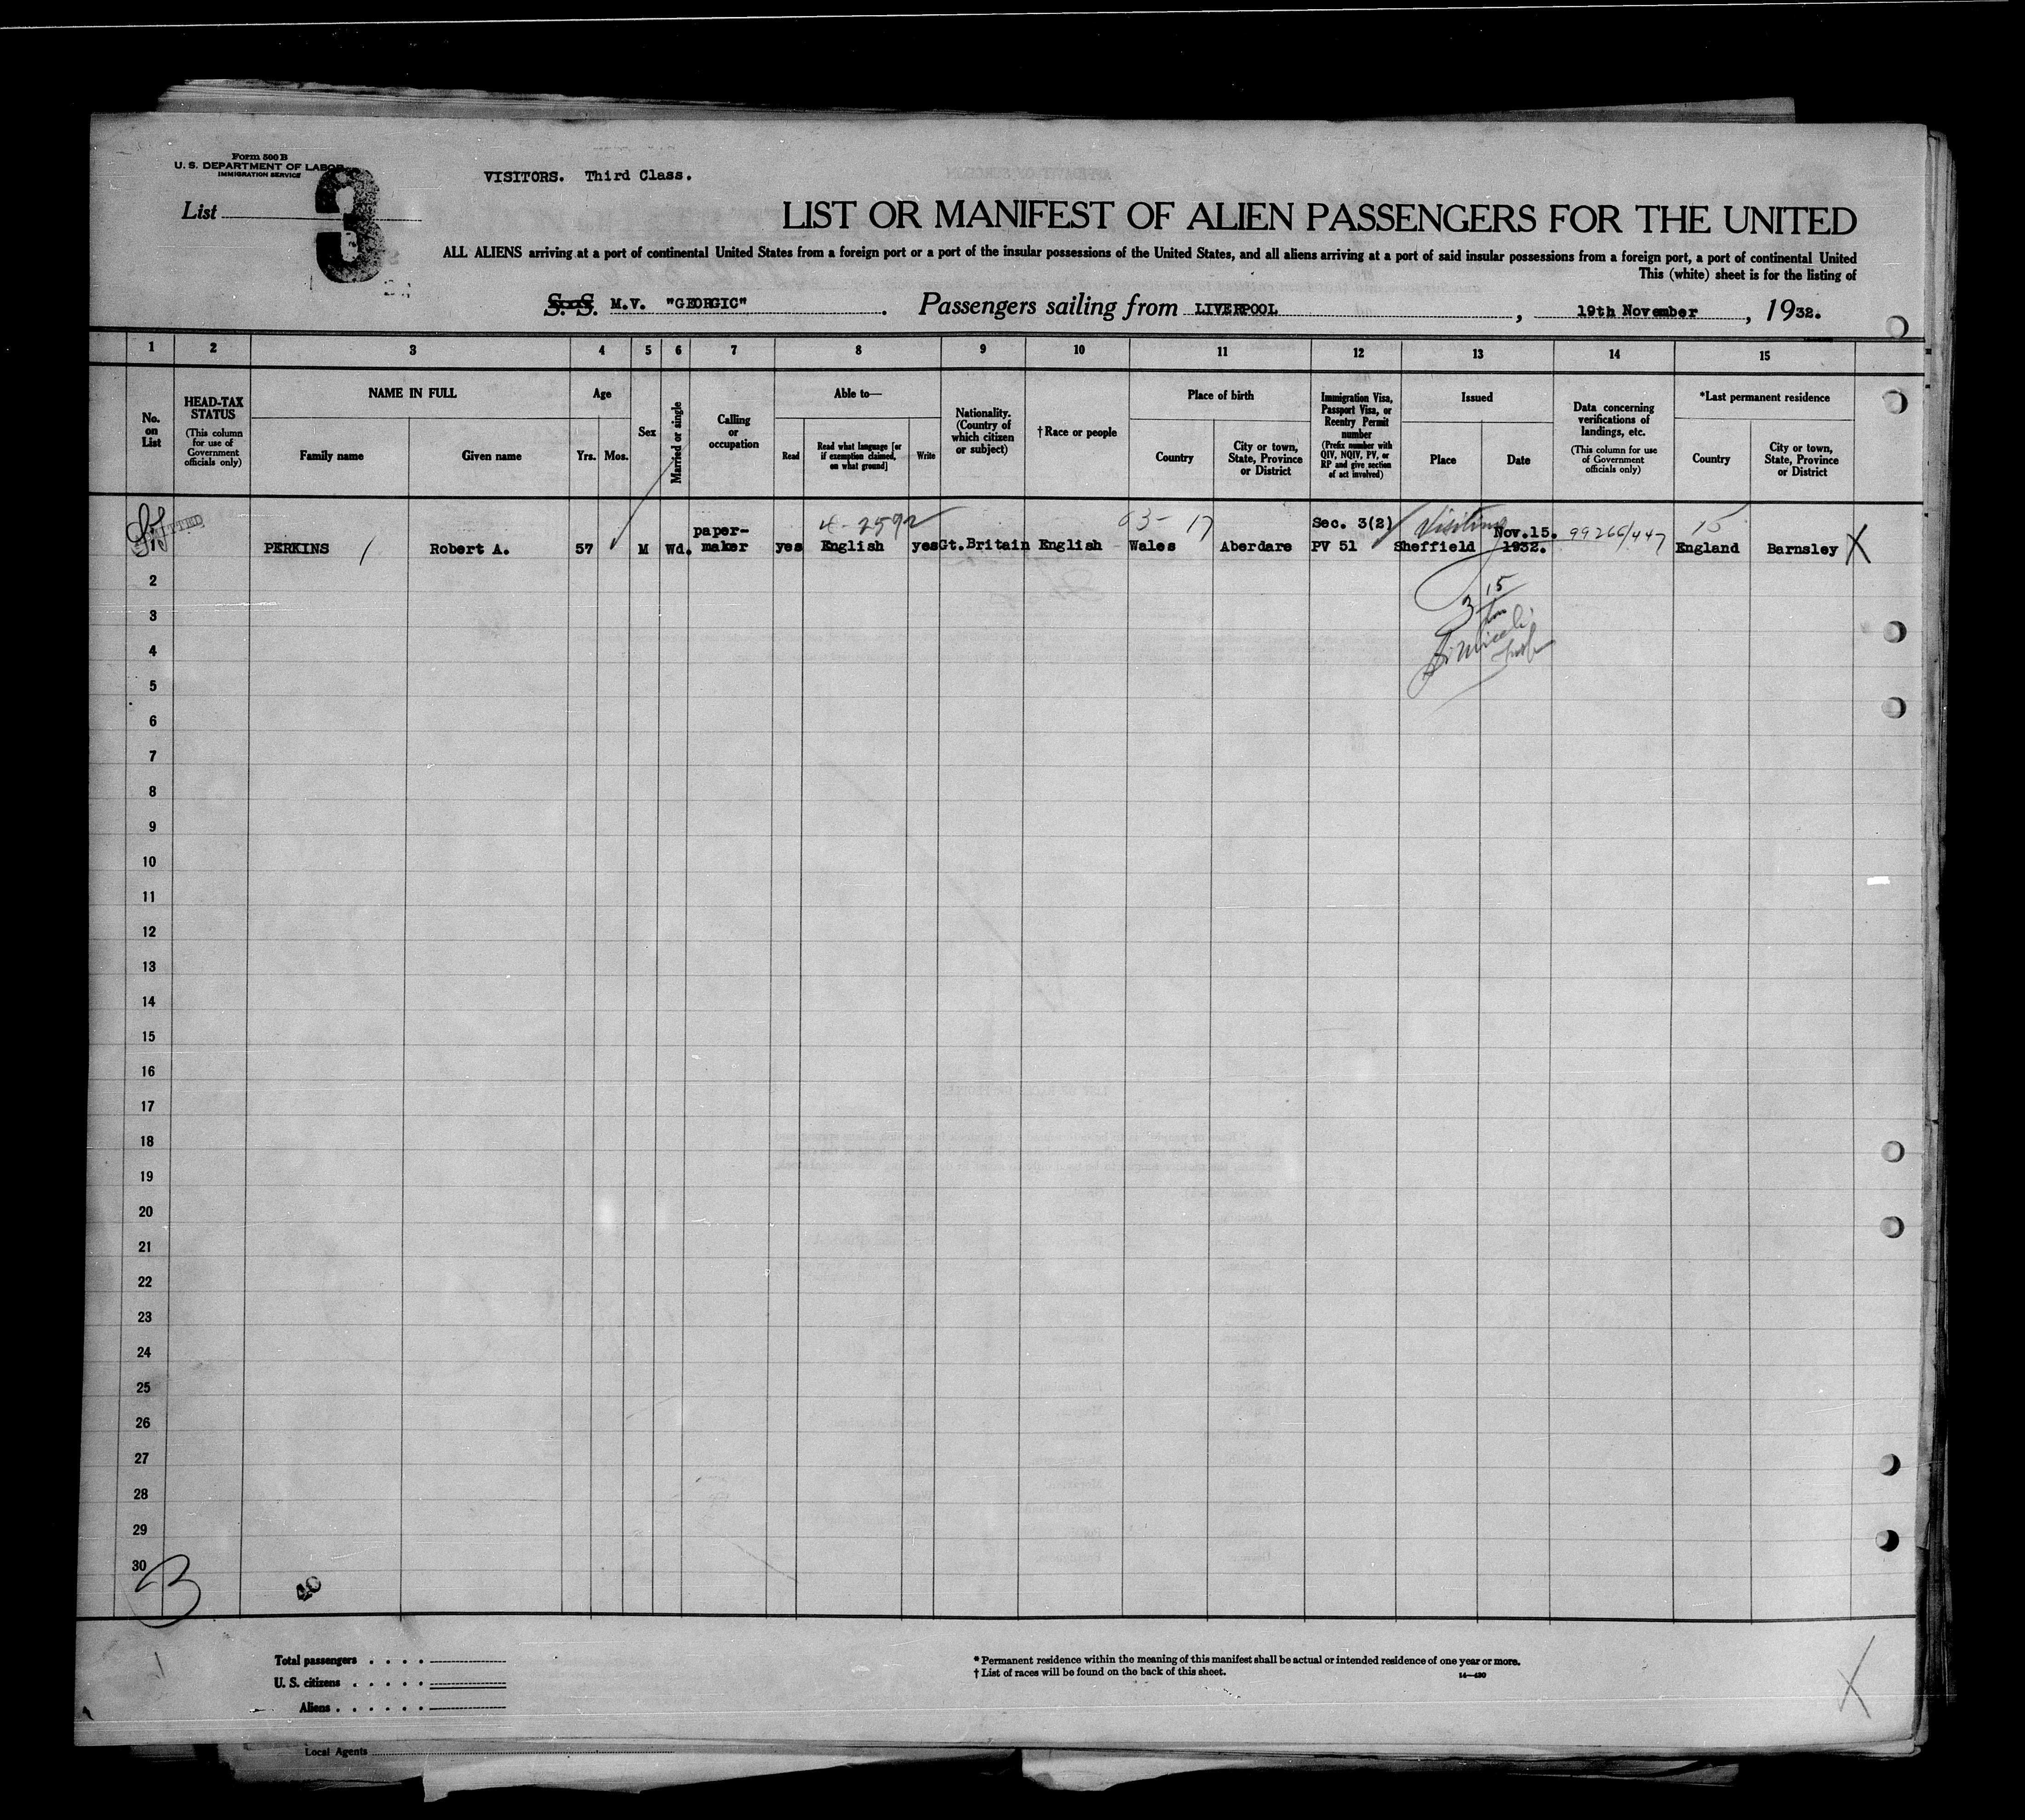 Form 500 B
U. S. DEPARTMENT OF LABOR
IMMIGRATION SERVICE
3
VISITORS. Third Class.
List
LIST OR MANIFEST OF ALIEN PASSENGERS FOR THE UNITED
ALL ALIENS arriving at a port of continental United States from a foreign port or a port of the insular possessions of the United States, and all aliens arriving at a port of said insular possessions from a foreign port, a port of continental United
This (white) sheet is for the listing of
S. S. M.V. "GEORGIC". Passengers sailing from LIVERPOOL, 19th November, 1932.
1 2 3 4 5 6 7 8 9 10 11 12 13 14 15
No. on List
HEAD-TAX STATUS
(This column for use of Government officials only)
NAME IN FULL
Family name
Given name
Age
Yrs. Mos.
Sex
Married or single
Calling or occupation
Able to—
Read
Read what language [or if exemption claimed, on what ground]
Write
Nationality. (Country of which citizen or subject)
†Race or people
Place of birth
Country
City or town, State, Province or District
Immigration Visa, Passport Visa, or Reentry Permit number
(Prefix number with QIV, NQIV, PV, or RP and give section of act involved)
Issued
Place
Date
Data concerning verifications of landings, etc.
(This column for use of Government officials only)
*Last permanent residence
Country
City or town, State, Province or District
ADMITTED
4-2592 63- 17 Visiting 15
paper- Sec. 3(2) Nov.15. 99266/447
1 PERKINS Robert A. 57 M Wd. maker yes English yes Gt.Britain English Wales Aberdare PV 51 Sheffield 1932. England Barnsley X
3 15
2
3
4
5
6
7
8
9
10
11
12
13
14
15
16
17
18
19
20
21
22
23
24
25
26
27
28
29
30
3
40
Total passengers . . . .
U. S. citizens . . . . .
Aliens . . . . . .
* Permanent residence within the meaning of this manifest shall be actual or intended residence of one year or more.
† List of races will be found on the back of this sheet.
14—430
X
Local Agents